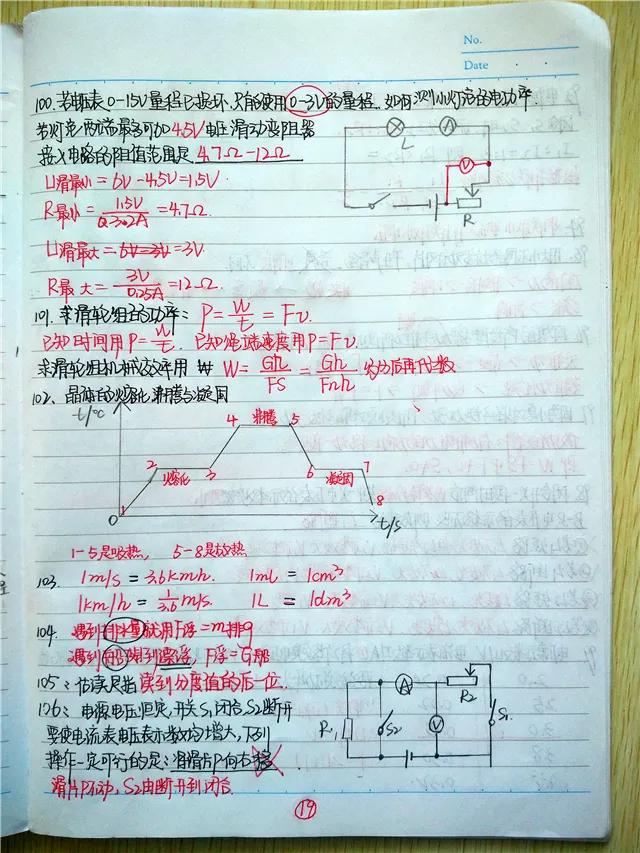 No.
Date
100. 若电压表0-15V量程已损坏.只能使用0-3V的量程.如何测小灯泡的电功率.
若灯泡两端最多可加4.5V电压滑动变阻器
接入电路的阻值范围是 4.7Ω-12Ω
U滑最小=6V-4.5V=1.5V.
R最小=1.5V/0.32A=4.7Ω.
U滑最大=6V-3V=3V
R最大=3V/0.25A=12Ω.
L
A
V
R
101. 求滑轮组的功率: P=W/t=Fv.
已知时间用P=W/t. 已知绳端速度用P=Fv.
求滑轮组机械效率用 W=Gh/FS=Gh/Fnh 约分后再代数
102. 晶体的熔化沸腾与凝固
t/℃
4 沸腾 5
2 熔化 3 6 凝固 7
1 8
0 t/s
1-5是吸热, 5-8是放热
103. 1m/s=3.6km/h. 1mL=1cm³
1km/h=1/3.6 m/s. 1L=1dm³
104. 遇到排水量就用F浮=m排g
遇到船想到漂浮,F浮=G船
105: 估读是指读到分度值的后一位.
106: 电源电压恒定,开关S₁闭合S₂断开
要使电流表电压表示数均增大,下列
操作一定可行的是:滑片P向右移
滑片P不动,S₂由断开到闭合.
A
R₂
R₁
S₂
V
S₁
19